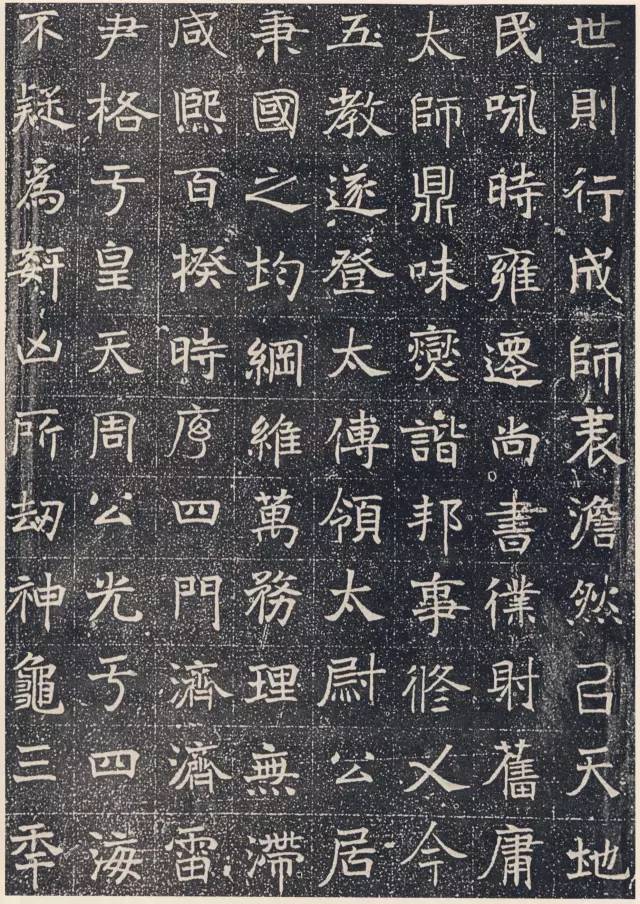 世則行成師表澹然已天地
民咏時雍遷尚書僕射舊庸
太師鼎味燮諧邦事修乂今
五教遂登太傅領太尉公居
秉國之均綱維萬務理無滯
咸熙百揆時序四門濟濟雷
尹格于皇天周公光于四海
不疑為姧凶所劫神龜三年